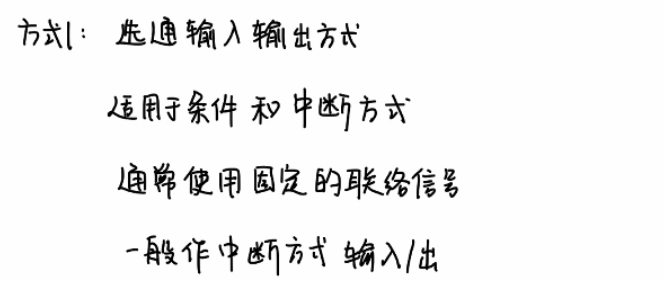 方式1: 选通输入输出方式
适用于条件和中断方式
通常使用固定的联络信号
一般作中断方式输入/出